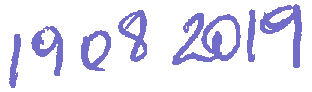 1908 2019